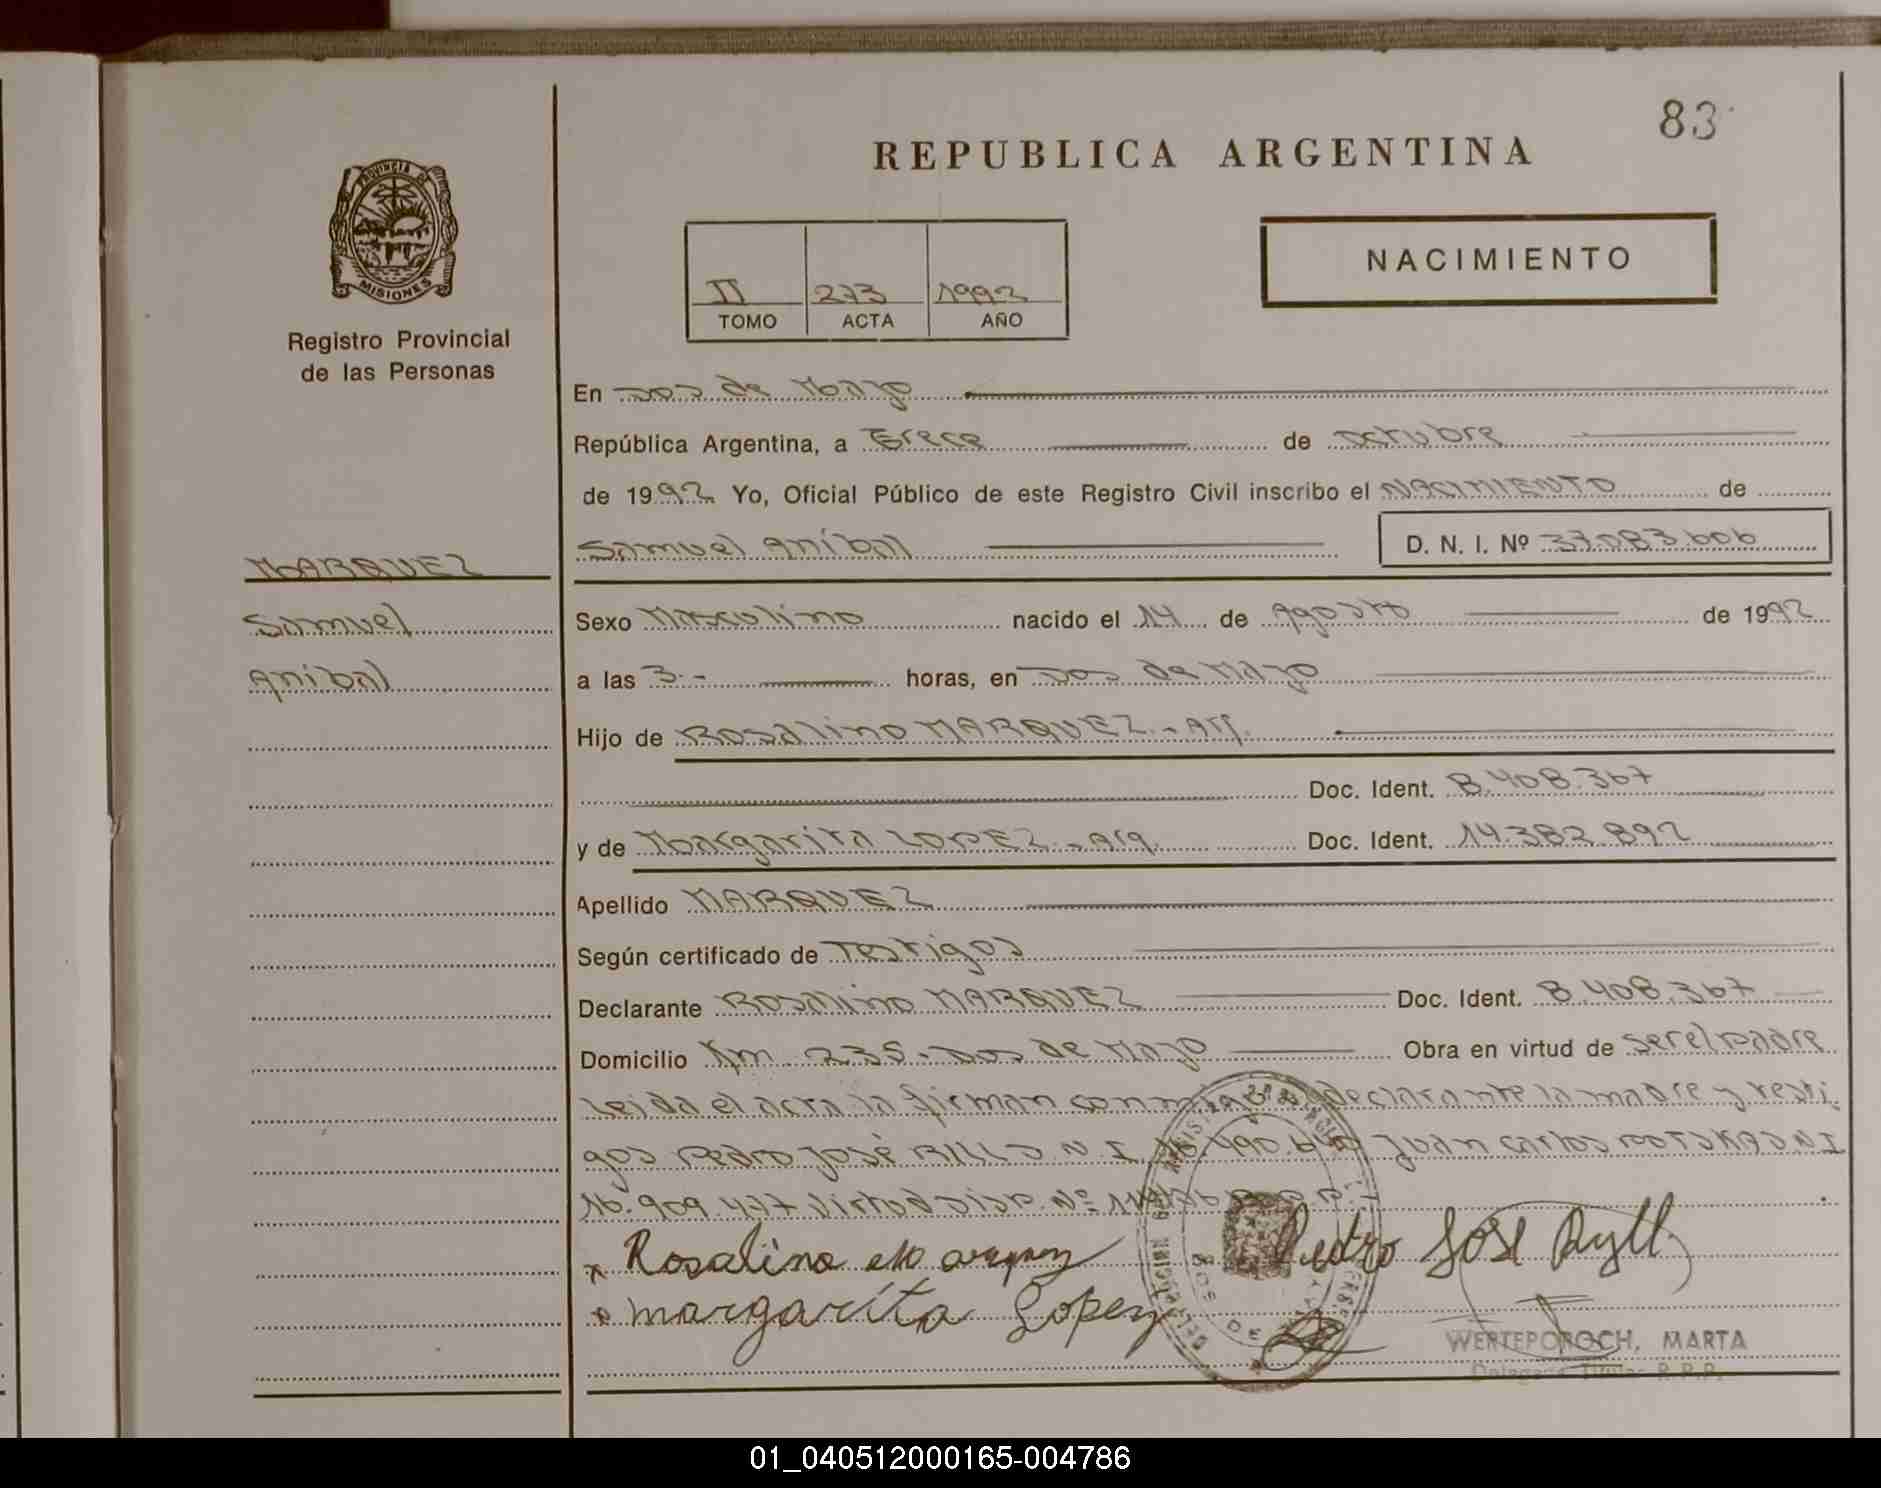 83
REPUBLICA ARGENTINA
PROVINCIA DE
MISIONES
Registro Provincial
de las Personas
NACIMIENTO
II 273 1992
TOMO ACTA AÑO
En Dos de Mayo
República Argentina, a Trece de octubre
de 1992 Yo, Oficial Público de este Registro Civil inscribo el NACIMIENTO de
Samuel Aníbal D. N. I. Nº 37.083.606
MARQUEZ
Samuel
Aníbal
Sexo Masculino nacido el 14 de Agosto de 1992
a las 3.- horas, en Dos de Mayo
Hijo de Rosalino MARQUEZ.- Arg.
Doc. Ident. 8.408.367
y de Margarita LOPEZ.- Arg. Doc. Ident. 14.382.892
Apellido MARQUEZ
Según certificado de Testigos
Declarante Rosalino MARQUEZ Doc. Ident. 8.408.367
Domicilio Km 235 - Dos de Mayo Obra en virtud de ser el padre
Leida el acta la firman conmigo el declarante la madre y testi-
gos Pedro José RILL D.N.I. 16.490.640 Juan Carlos D.N.I
16.909.477 Virtud Disp. Nº
Rosalino Marquez Pedro José Ryll
margarita Lopez
DOS DE MAYO
WERTEPOROCH, MARTA
Delegada Titular R.P.P.
01_040512000165-004786